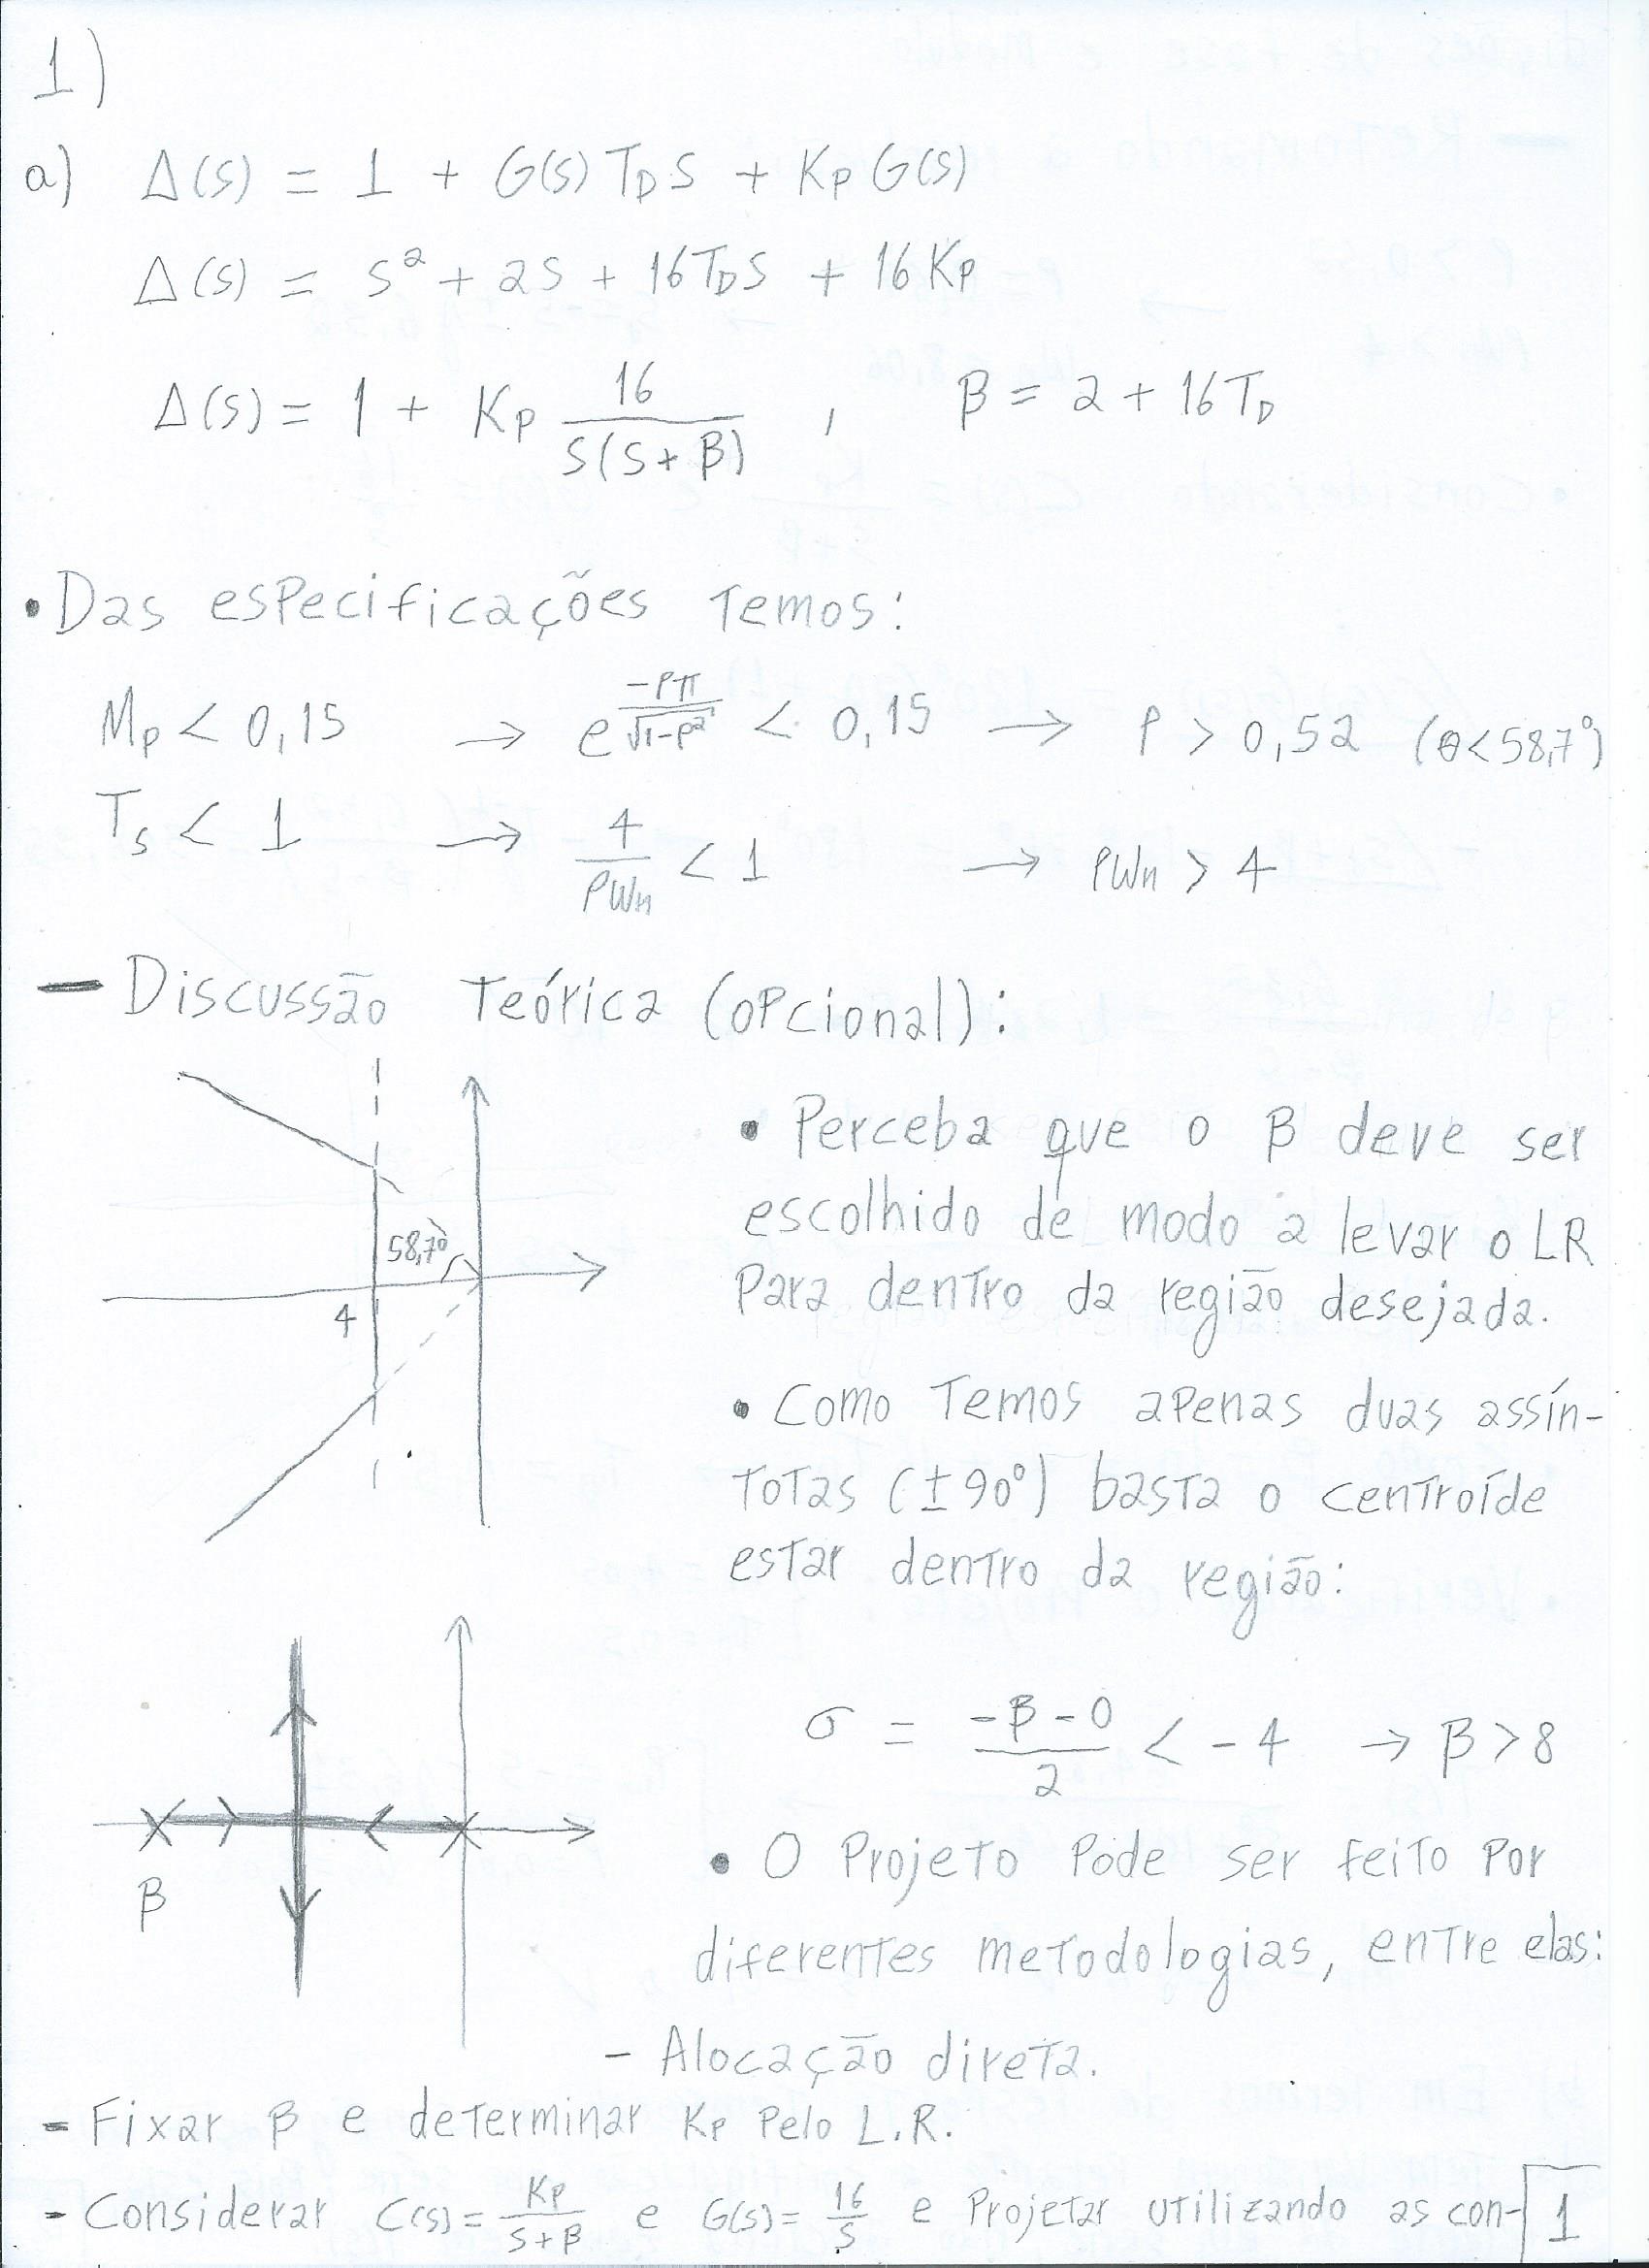 1)
a) Δ(s) = 1 + G(s) T_D s + K_P G(s)
Δ(s) = s² + 2s + 16T_D s + 16 K_P
Δ(s) = 1 + K_P 16/(s(s+β)) , β = 2 + 16T_D
• Das especificações temos:
M_P < 0,15 → e^(-ρπ/√(1-ρ²)) < 0,15 → ρ > 0,52 (θ<58,7°)
T_s < 1 → 4/(ρWn) < 1 → ρWn > 4
- Discussão teórica (opcional):
58,7°
4
• Perceba que o β deve ser
escolhido de modo a levar o LR
para dentro da região desejada.
• Como temos apenas duas assín-
totas (±90°) basta o centroíde
estar dentro da região:
σ = (-β-0)/2 < -4 → β > 8
β
• O projeto pode ser feito por
diferentes metodologias, entre elas:
- Alocação direta.
- Fixar β e determinar K_P pelo L.R.
- Considerar C(s) = K_P/(s+β) e G(s) = 16/s e projetar utilizando as con-
1